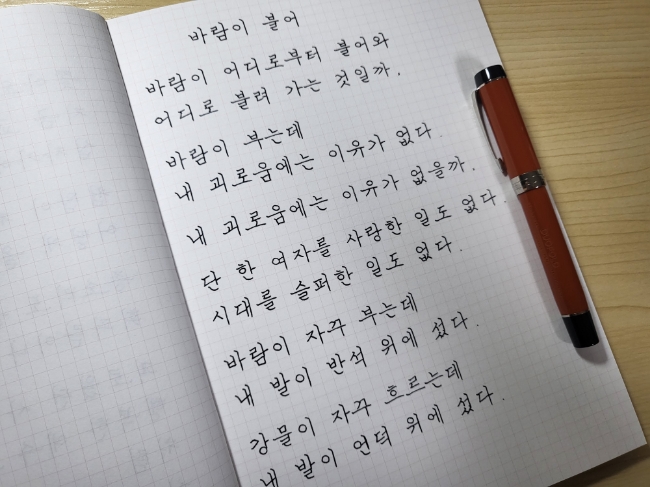 바람이 불어
바람이 어디로부터 불어와
어디로 불려 가는 것일까.
바람이 부는데
내 괴로움에는 이유가 없다.
내 괴로움에는 이유가 없을까.
단 한 여자를 사랑한 일도 없다.
시대를 슬퍼한 일도 없다.
바람이 자꾸 부는데
내 발이 반석 위에 섰다.
강물이 자꾸 흐르는데
내 발이 언덕 위에 섰다.